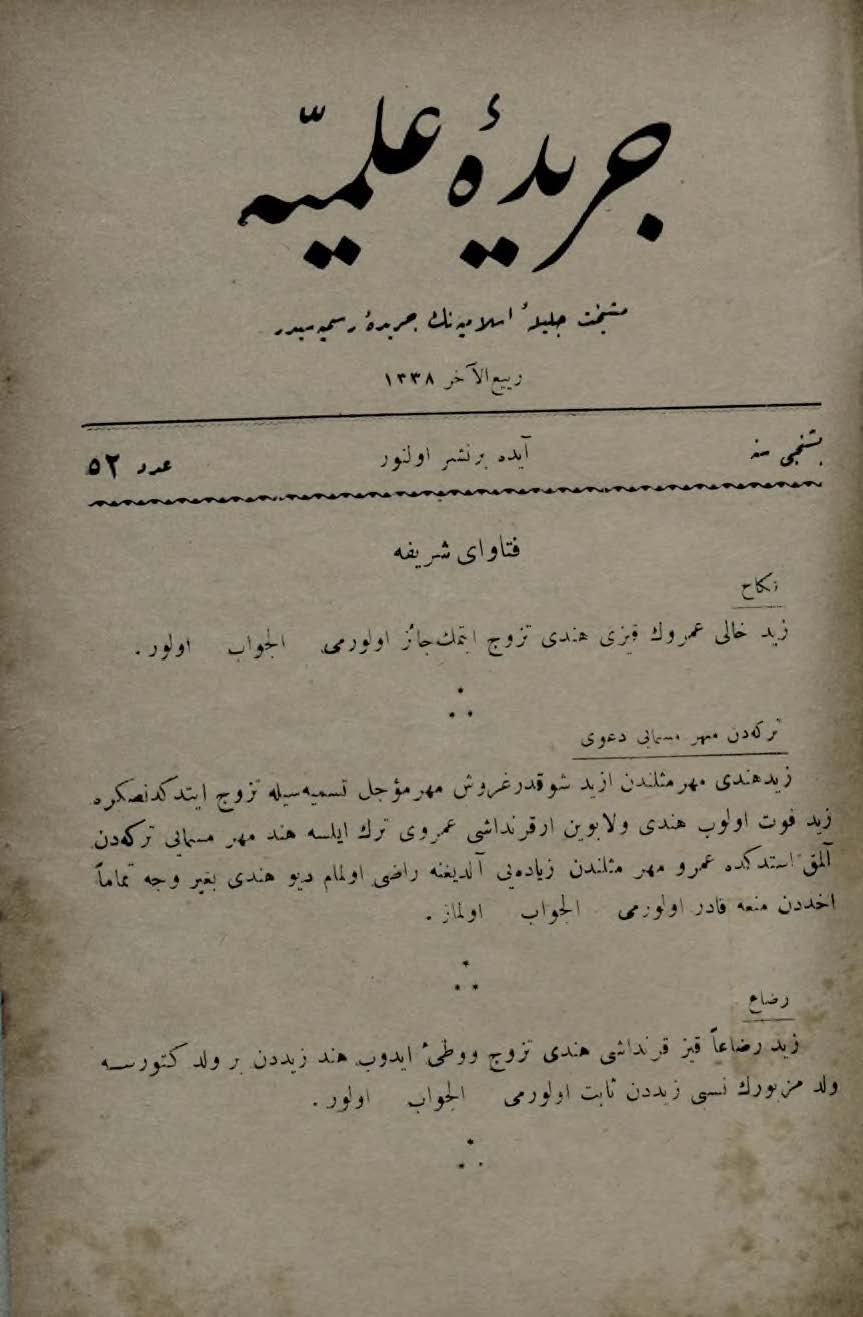 جريدۀ علميّه
مشيخت جليلۀ اسلاميه‌نك جريدۀ رسميه‌سيدر
ربيع الآخر ١٣٣٨
بشنجى سنه
آيده بر نشر اولنور
عدد ٥٢
فتاواى شريفه
نكاح
زيد خالى عمروك قيزى هندى تزوج ايتمك جائز اولورمى الجواب اولور .
تركه‌دن مهر مسمايى دعوى
زيد هندى مهر مثلندن ازيد شو قدر غروش مهر مؤجل تسميه‌سيله تزوج ايتدكدنصكره
زيد فوت اولوب هندى ولابوين ار قرنداشى عمروى ترك ايلسه هند مهر مسمايى تركه‌دن
آلمق استدكده عمرو مهر مثلندن زياده‌يى آلديغنه راضى اولمام ديو هندى بغير وجه تماماً
اخددن منعه قادر اولورمى الجواب اولماز .
رضاع
زيد رضاعاً قيز قرنداشى هندى تزوج ووطئ ايدوب هند زيددن بر ولد كتورسه
ولد مزبورك نسبى زيددن ثابت اولورمى الجواب اولور .